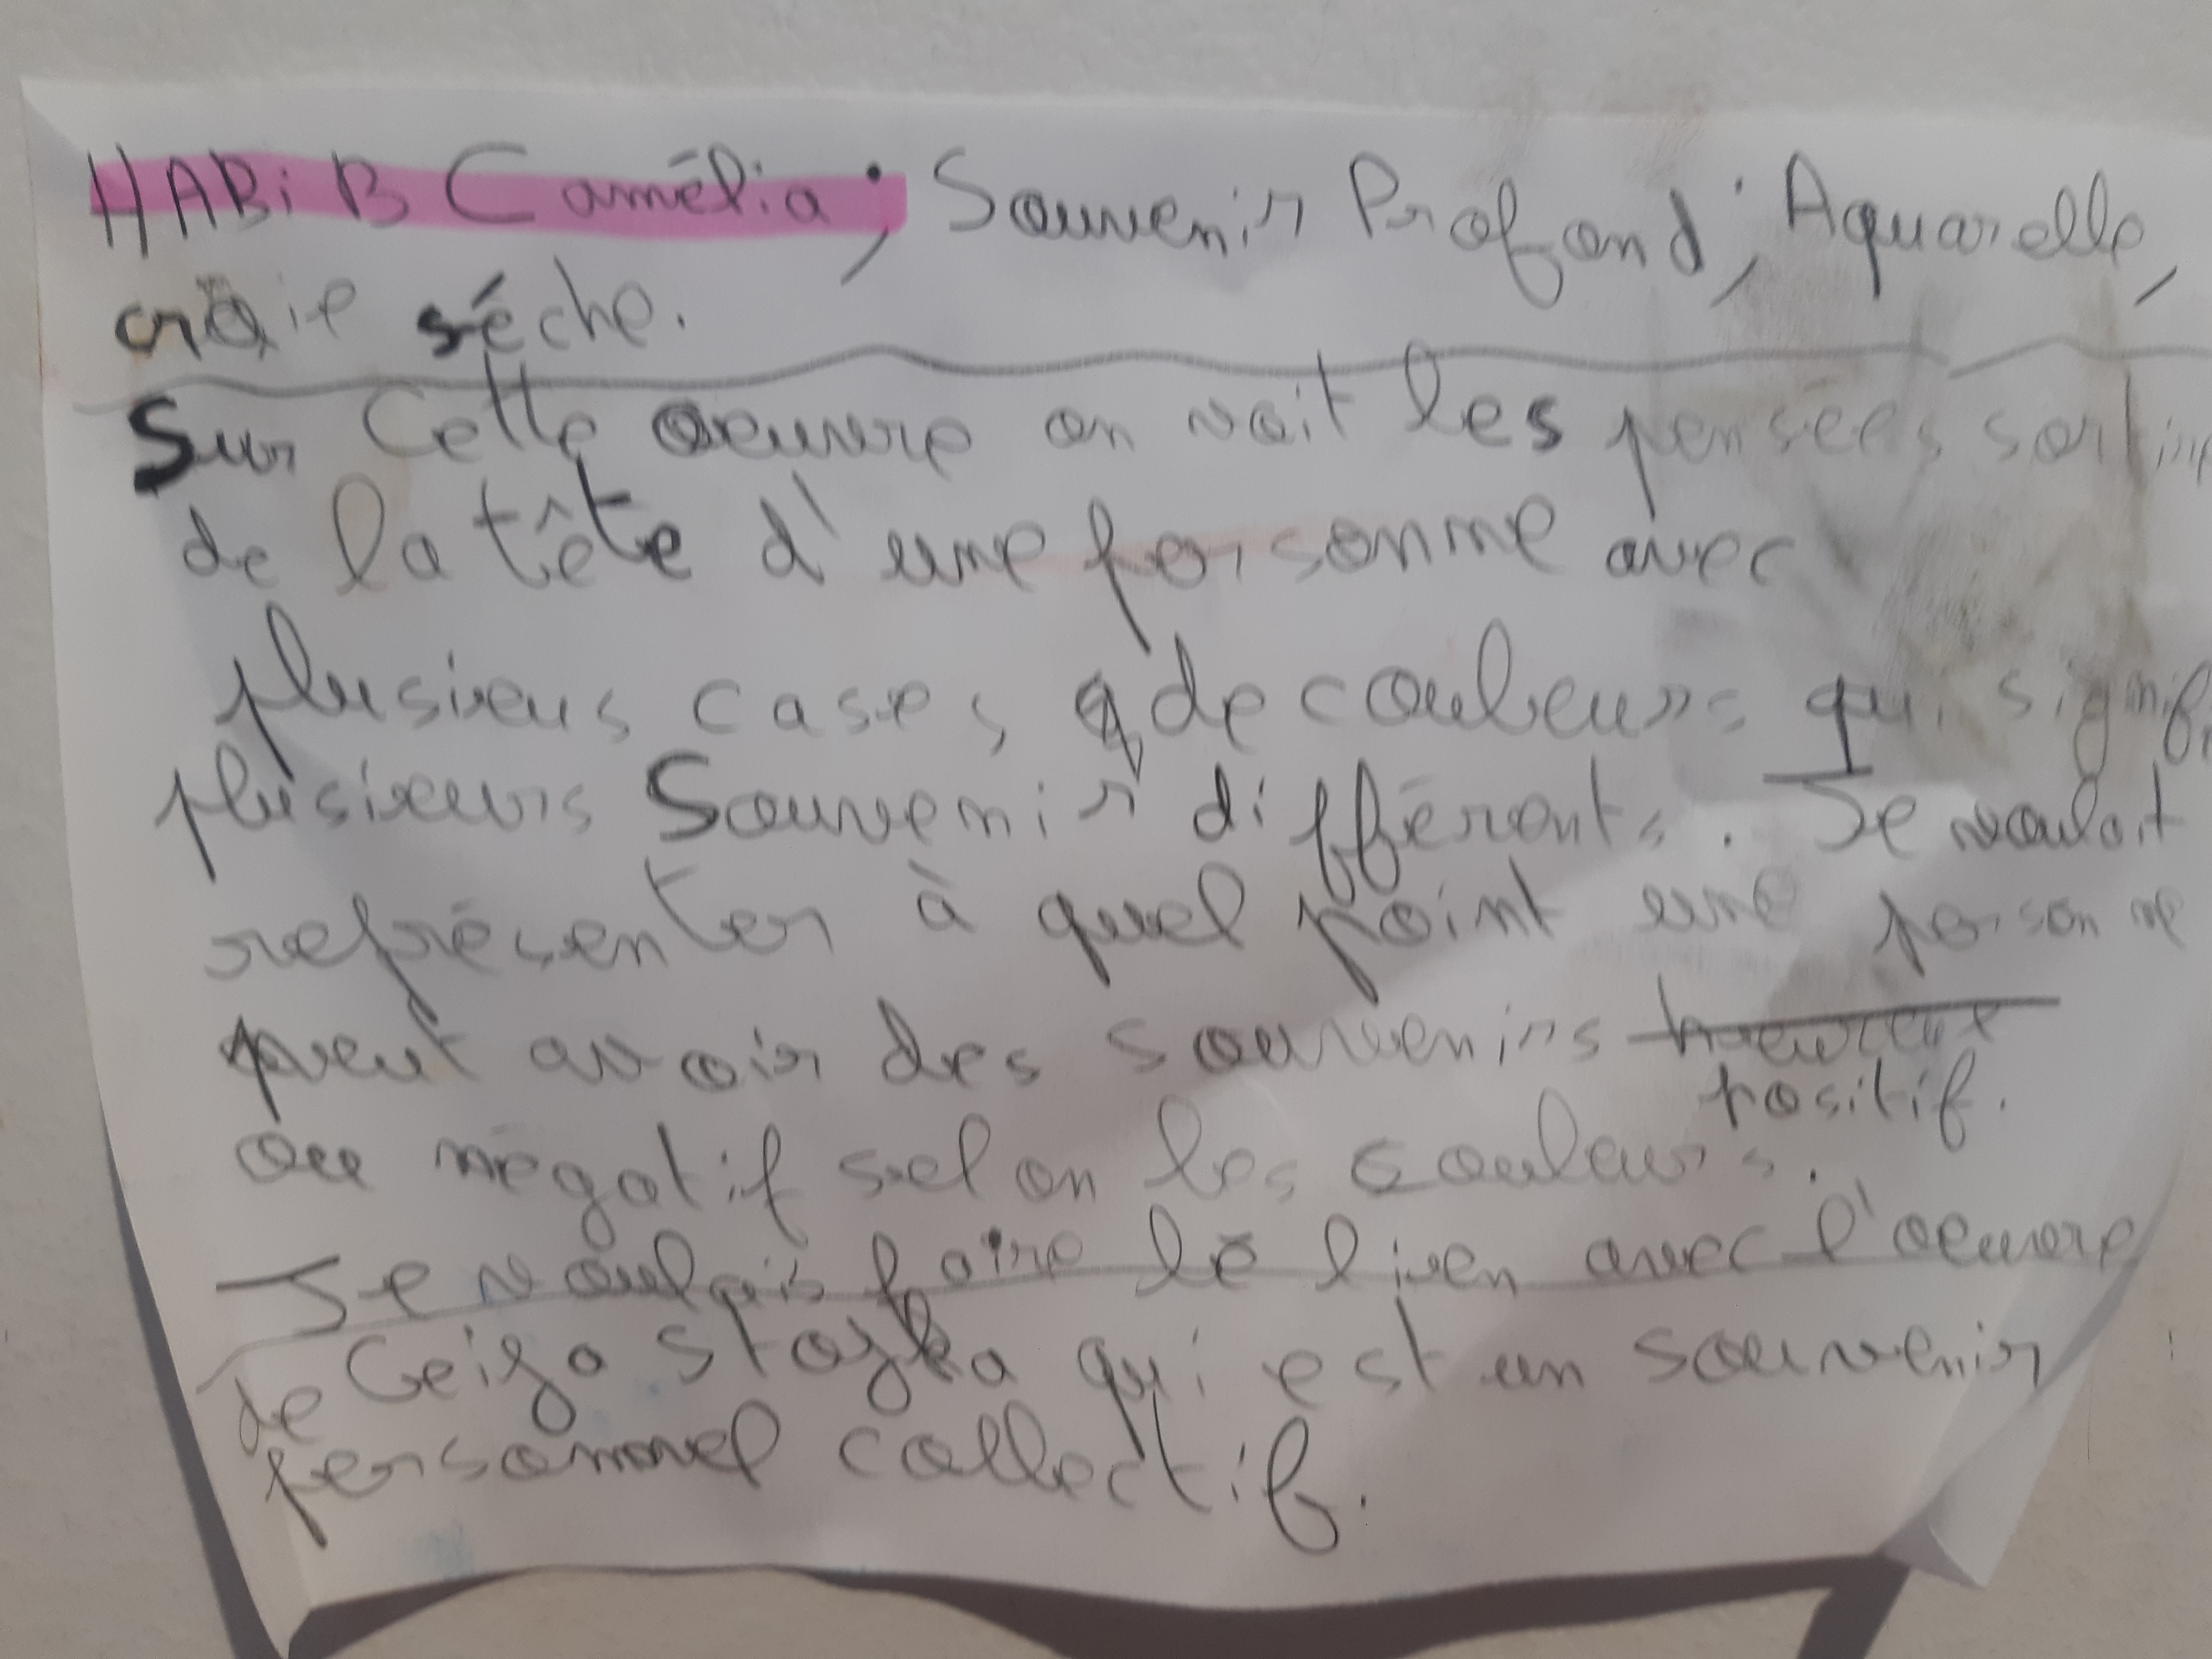 HABiB Camélia; Souvenir Profond; Aquarelle,
craie sèche.
Sur Cette oeuvre on voit les pensées sortir
de la tête d'une personne avec
plusieus cases, de couleurs qui signifi
plusieurs Souvenir différents. Je voulait
représenter à quel point une personne
peut avoir des souvenirs heureux
positif.
ou négatif selon les couleurs.
Je voulais faire le lien avec l'oeuvre
de Ceija Stojka qui est un souvenir
personnel collectif.